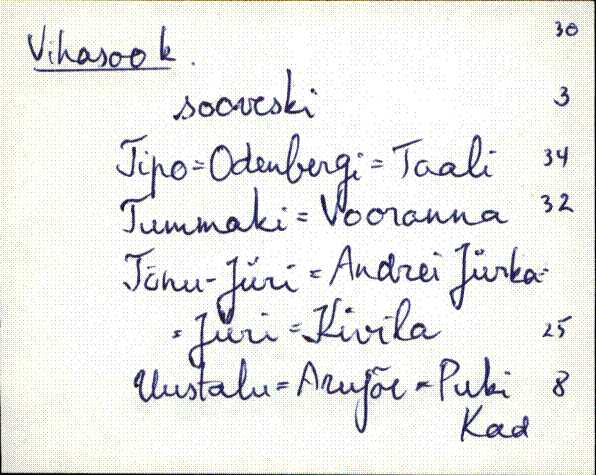 30
Vihasoo k.
sooveski 3
Tipo = Odenbergi = Taali 34
Tummaki = Vooranna 32
Tõnu-Jüri = Andrei Jürka =
= Jüri = Kivila 25
Uustalu = Arujõe = Puki 8
Kad